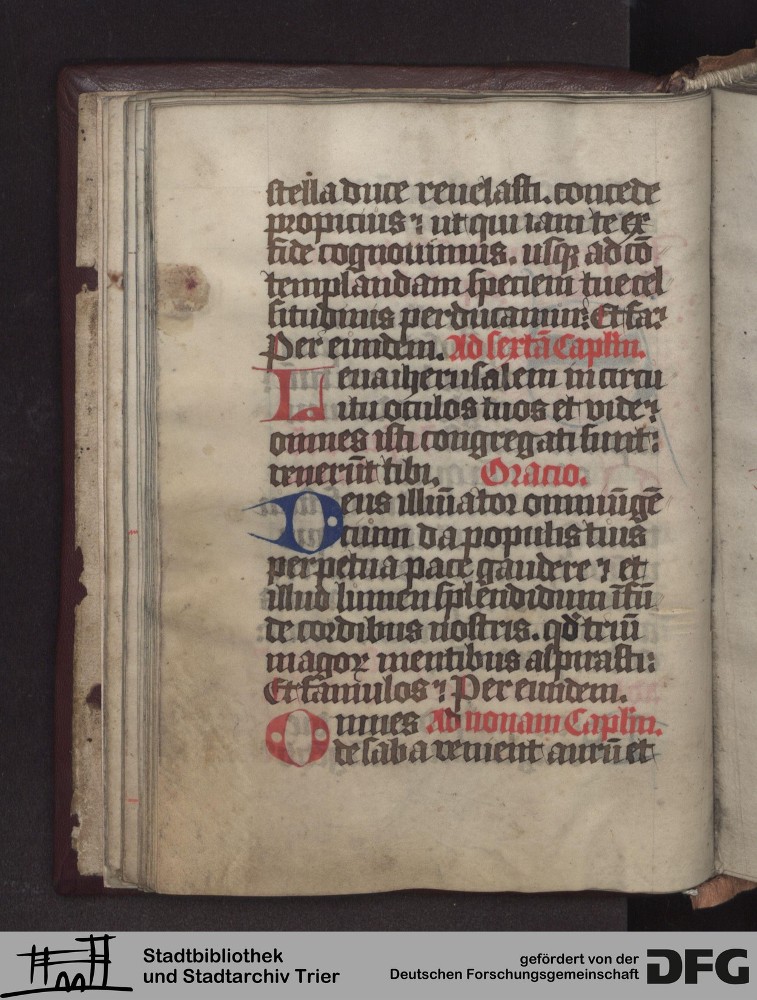 stella duce reuelasti. concede
propicius ut qui iam te ex
fide cognouimus. usq; ad cō
templandam speciem tue cel
situdinis perducamur: Et fa
Per eundem. Ad sextā Caplm.
Leua iherusalem in circu
itu oculos tuos et vide
omnes isti congregati sunt:
venerūt tibi. Oracio.
Deus illūator omniū gē
tium da populis tuis
perpetua pace gaudere et
illud lumen splendidum īfū
de cordibus nostris. qd̄ triū
magoꝝ mentibus aspirasti:
Et famulos Per eundem.
Omnes Ad nonam Caplm.
de saba venient aurū et
Stadtbibliothek
und Stadtarchiv Trier
gefördert von der
Deutschen Forschungsgemeinschaft
DFG